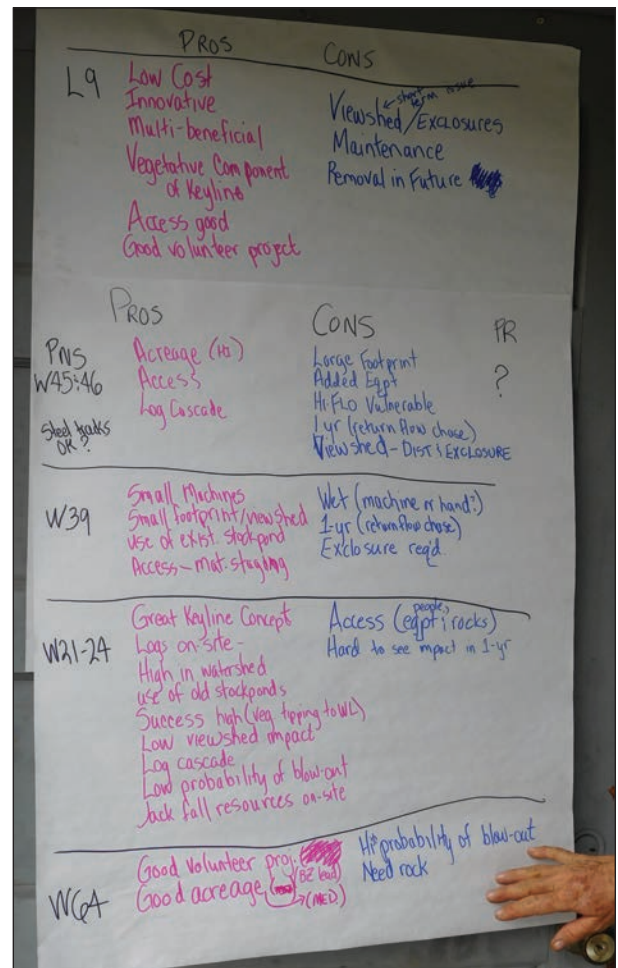 PROS CONS
L9
Low Cost
Innovative
Multi-beneficial
Vegetative Component
of Keyline
Access good
Good volunteer project
short term issue
Viewshed/EXCLOSURES
Maintenance
Removal in Future
PROS CONS PR
PNS
W45:46
Steel tracks
OK?
Acreage (Hi)
Access
Log Cascade
Large Footprint
Added Eqpt
Hi FLO Vulnerable
1 yr (return flow chase)
Viewshed - DIST & EXCLOSURE
?
W39
Small Machines
Small footprint/viewshed
use of exist. stockpond
Access - mat. staging
Wet (machine or hand?)
1-yr (return flow chase)
Exclosure req'd.
W21-24
Great Keyline Concept
Logs on-site -
High in watershed
use of old stockponds
Success high (veg tipping to WL)
Low viewshed impact
Log cascade
Low probability of blow-out
Jack fall resources on-site
people,
Access (eqpt; rocks)
Hard to see impact in 1-yr
W64
Good volunteer proj.
(BZ lead)
Good acreage
(MED)
Hi probability of blow-out
Need rock